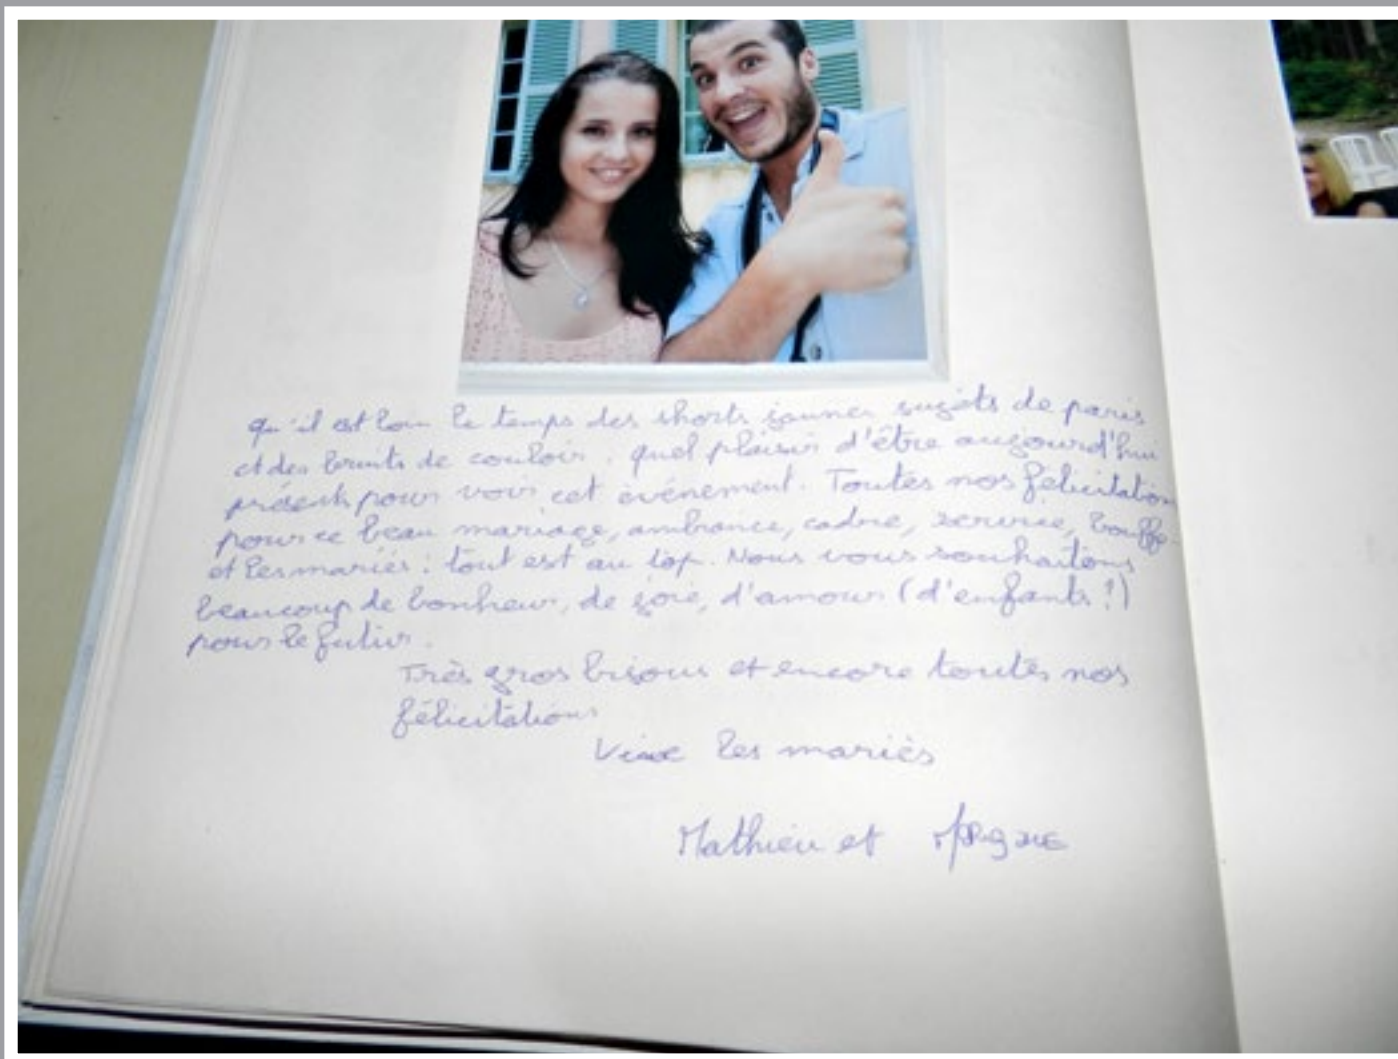 qu'il est loin le temps des shorts jaunes sujets de paris
et des bruits de couloir. quel plaisir d'être aujourd'hui
présents pour voir cet événement. Toutes nos félicitations
pour ce beau mariage, ambiance, cadre, service, bouffe
et les mariés : tout est au top. Nous vous souhaitons
beaucoup de bonheur, de joie, d'amour (d'enfants !)
pour le futur.
Très gros bisous et encore toutes nos
félicitations
Vive les mariés
Mathieu et Morgane